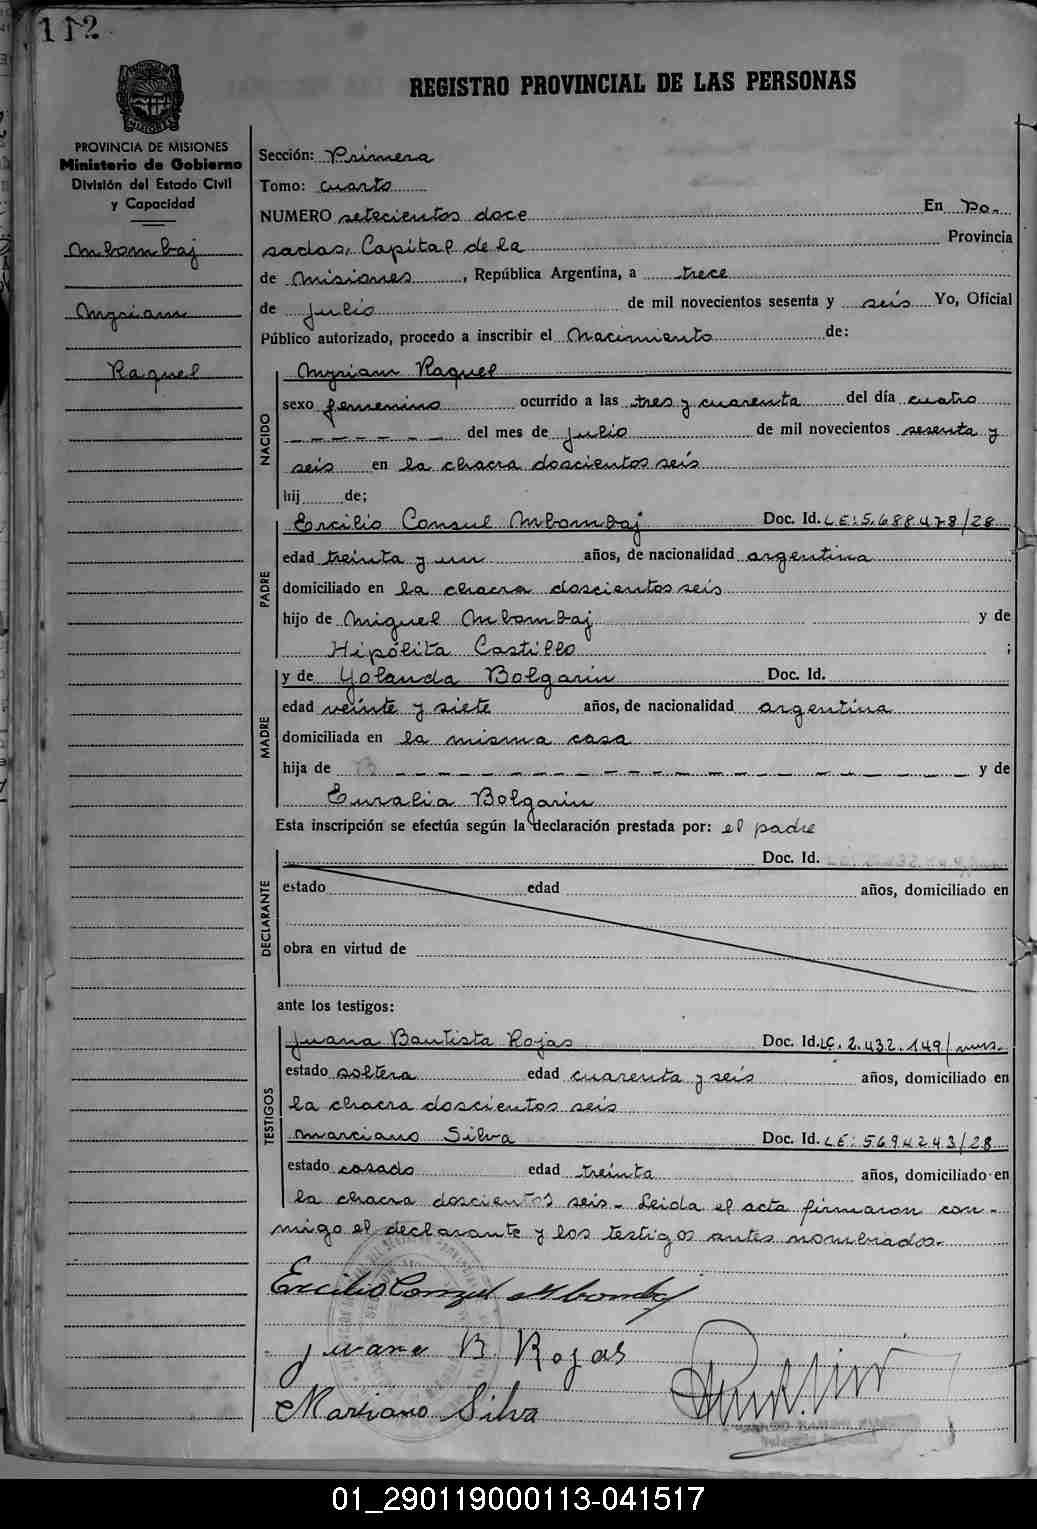 112
REGISTRO PROVINCIAL DE LAS PERSONAS
PROVINCIA DE MISIONES
Ministerio de Gobierno
División del Estado Civil
y Capacidad
Mbombaj
Myriam
Raquel
Sección: Primera
Tomo: cuarto
NUMERO setecientos doce En Po-
sadas, Capital de la Provincia
de Misiones, República Argentina, a trece
de Julio de mil novecientos sesenta y seis Yo, Oficial
Público autorizado, procedo a inscribir el Nacimiento de:
NACIDO
Myriam Raquel
sexo femenino ocurrido a las tres y cuarenta del día cuatro
_ _ _ _ _ _ _ del mes de Julio de mil novecientos sesenta y
seis en la chacra doscientos seis
hij de;
PADRE
Ercilio Consul Mbombaj Doc. Id. L.E: 5.688.478/28
edad treinta y un años, de nacionalidad argentina
domiciliado en la chacra doscientos seis
hijo de Miguel Mbombaj y de
Hipólita Castillo ;
MADRE
y de Yolanda Bolgarin Doc. Id.
edad veinte y siete años, de nacionalidad argentina
domiciliada en la misma casa
hija de _ _ _ _ _ _ _ _ _ _ _ _ _ _ _ y de
Euralia Bolgarin
Esta inscripción se efectúa según la declaración prestada por: el padre
DECLARANTE
Doc. Id.
estado edad años, domiciliado en
obra en virtud de
ante los testigos:
TESTIGOS
Juana Bautista Rojas Doc. Id. LC. 2.432.149/mns.
estado soltera edad cuarenta y seis años, domiciliado en
la chacra doscientos seis
Marciano Silva Doc. Id. L.E: 5694243/28
estado casado edad treinta años, domiciliado en
la chacra doscientos seis.- Leida el acta firmaron con-
migo el declarante y los testigos antes nombrados.-
Ercilio Consul Mbombaj
Juana B. Rojas
Marciano Silva
01_290119000113-041517